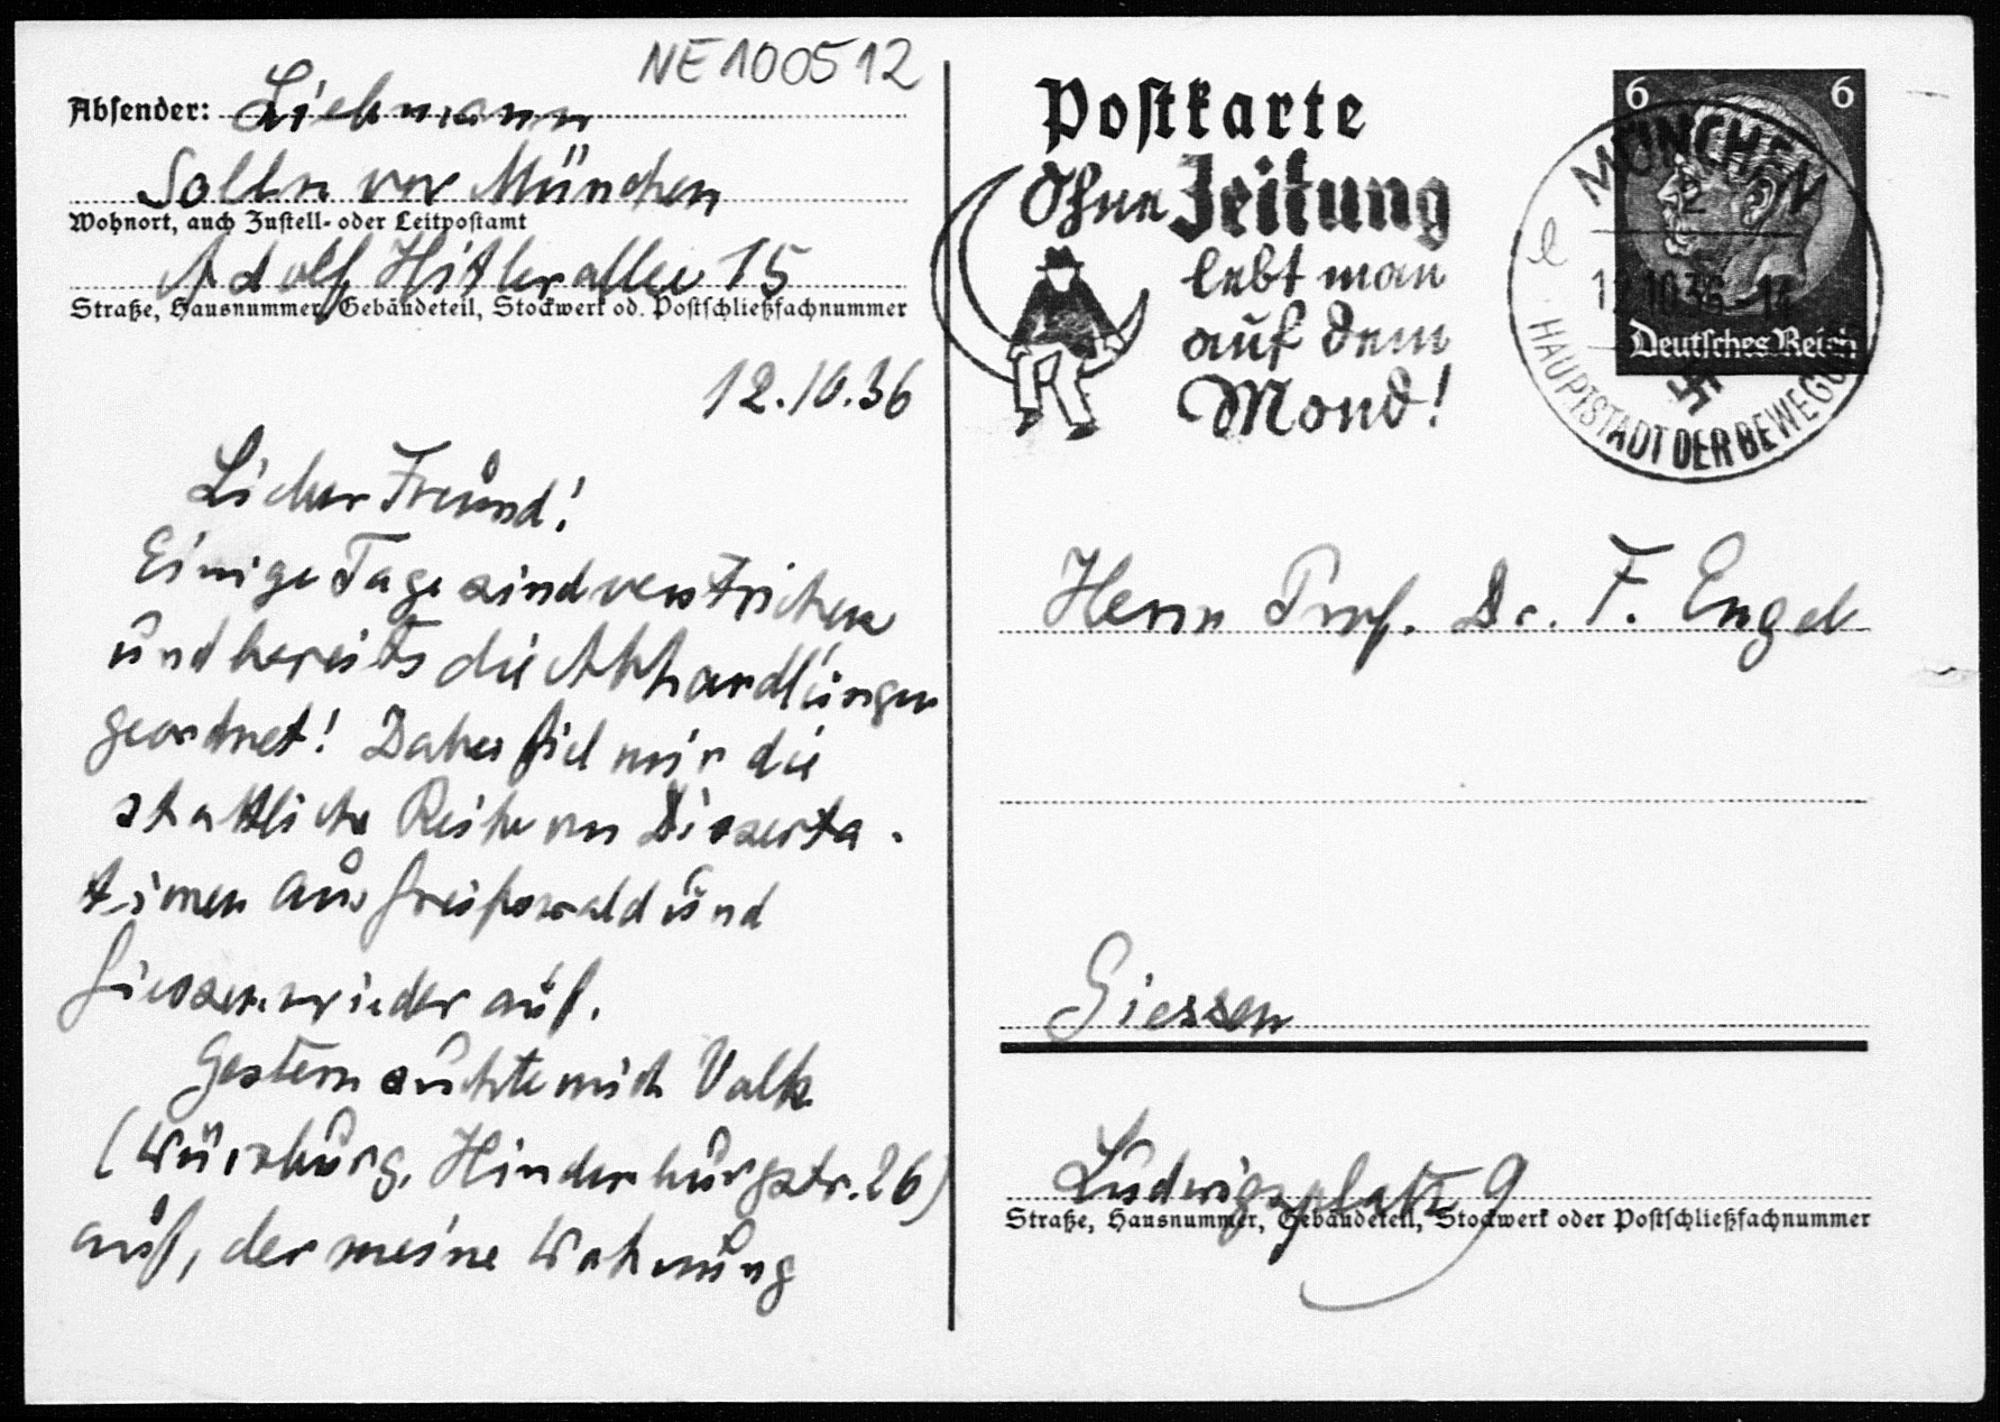 NE100512
Absender: Liebmann
Solln vor München
Wohnort, auch Zustell- oder Leitpostamt
Adolf Hitlerallee 15
Straße, Hausnummer, Gebäudeteil, Stockwerk od. Postschließfachnummer
12.10.36
Lieber Freund!
Einige Tage sind verstrichen
und bereits die Abhandlungen
geordnet! Dabei fiel mir die
stattliche Reihe von Disserta-
tionen aus Greifswald und
Giessen wieder auf.
Gestern suchte mich Valk
(Würzburg, Hindenburgstr. 26)
auf, der meine Wohnung
Postkarte
Ohne Zeitung
lebt man
auf dem
Mond!
6 6
MÜNCHEN
2
12.10.36-14
Deutsches Reich
HAUPTSTADT DER BEWEGUNG
Herrn Prof. Dr. F. Engel
Giessen
Ludwigsplatz 9
Straße, Hausnummer, Gebäudeteil, Stockwerk oder Postschließfachnummer